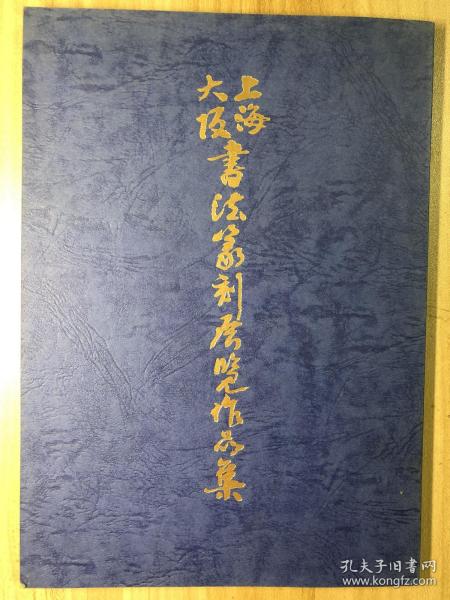 上海
大阪
書法篆刻展覽作品集
孔夫子旧书网
www.kongfz.com